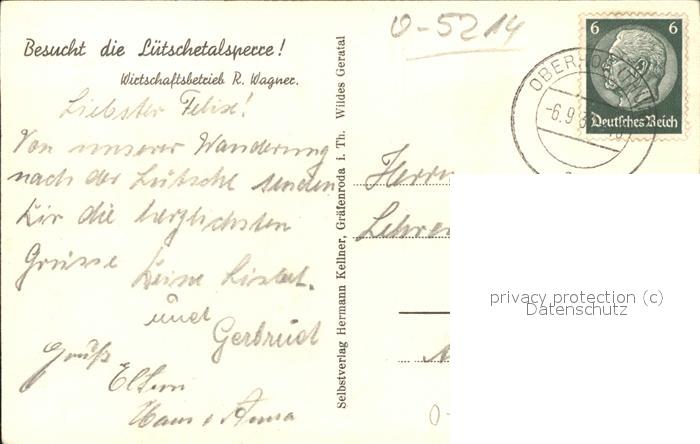 Besucht die Lütschetalsperre!
Wirtschaftsbetrieb R. Wagner.
Liebster Felix!
Von unserer Wanderung
nach der Lütsche senden
Dir die herzlichsten
Grüsse Deine Lisbet.
und
Gerbrud
Gruß
Eltern
Hans u Anna
Selbstverlag Hermann Kellner, Gräfenroda i. Th. Wildes Geratal
0-5214
6 6
Deutsches Reich
OBERHOF (THÜ
-6.9.3
Herrn
Lehrer
privacy protection (c)
Datenschutz